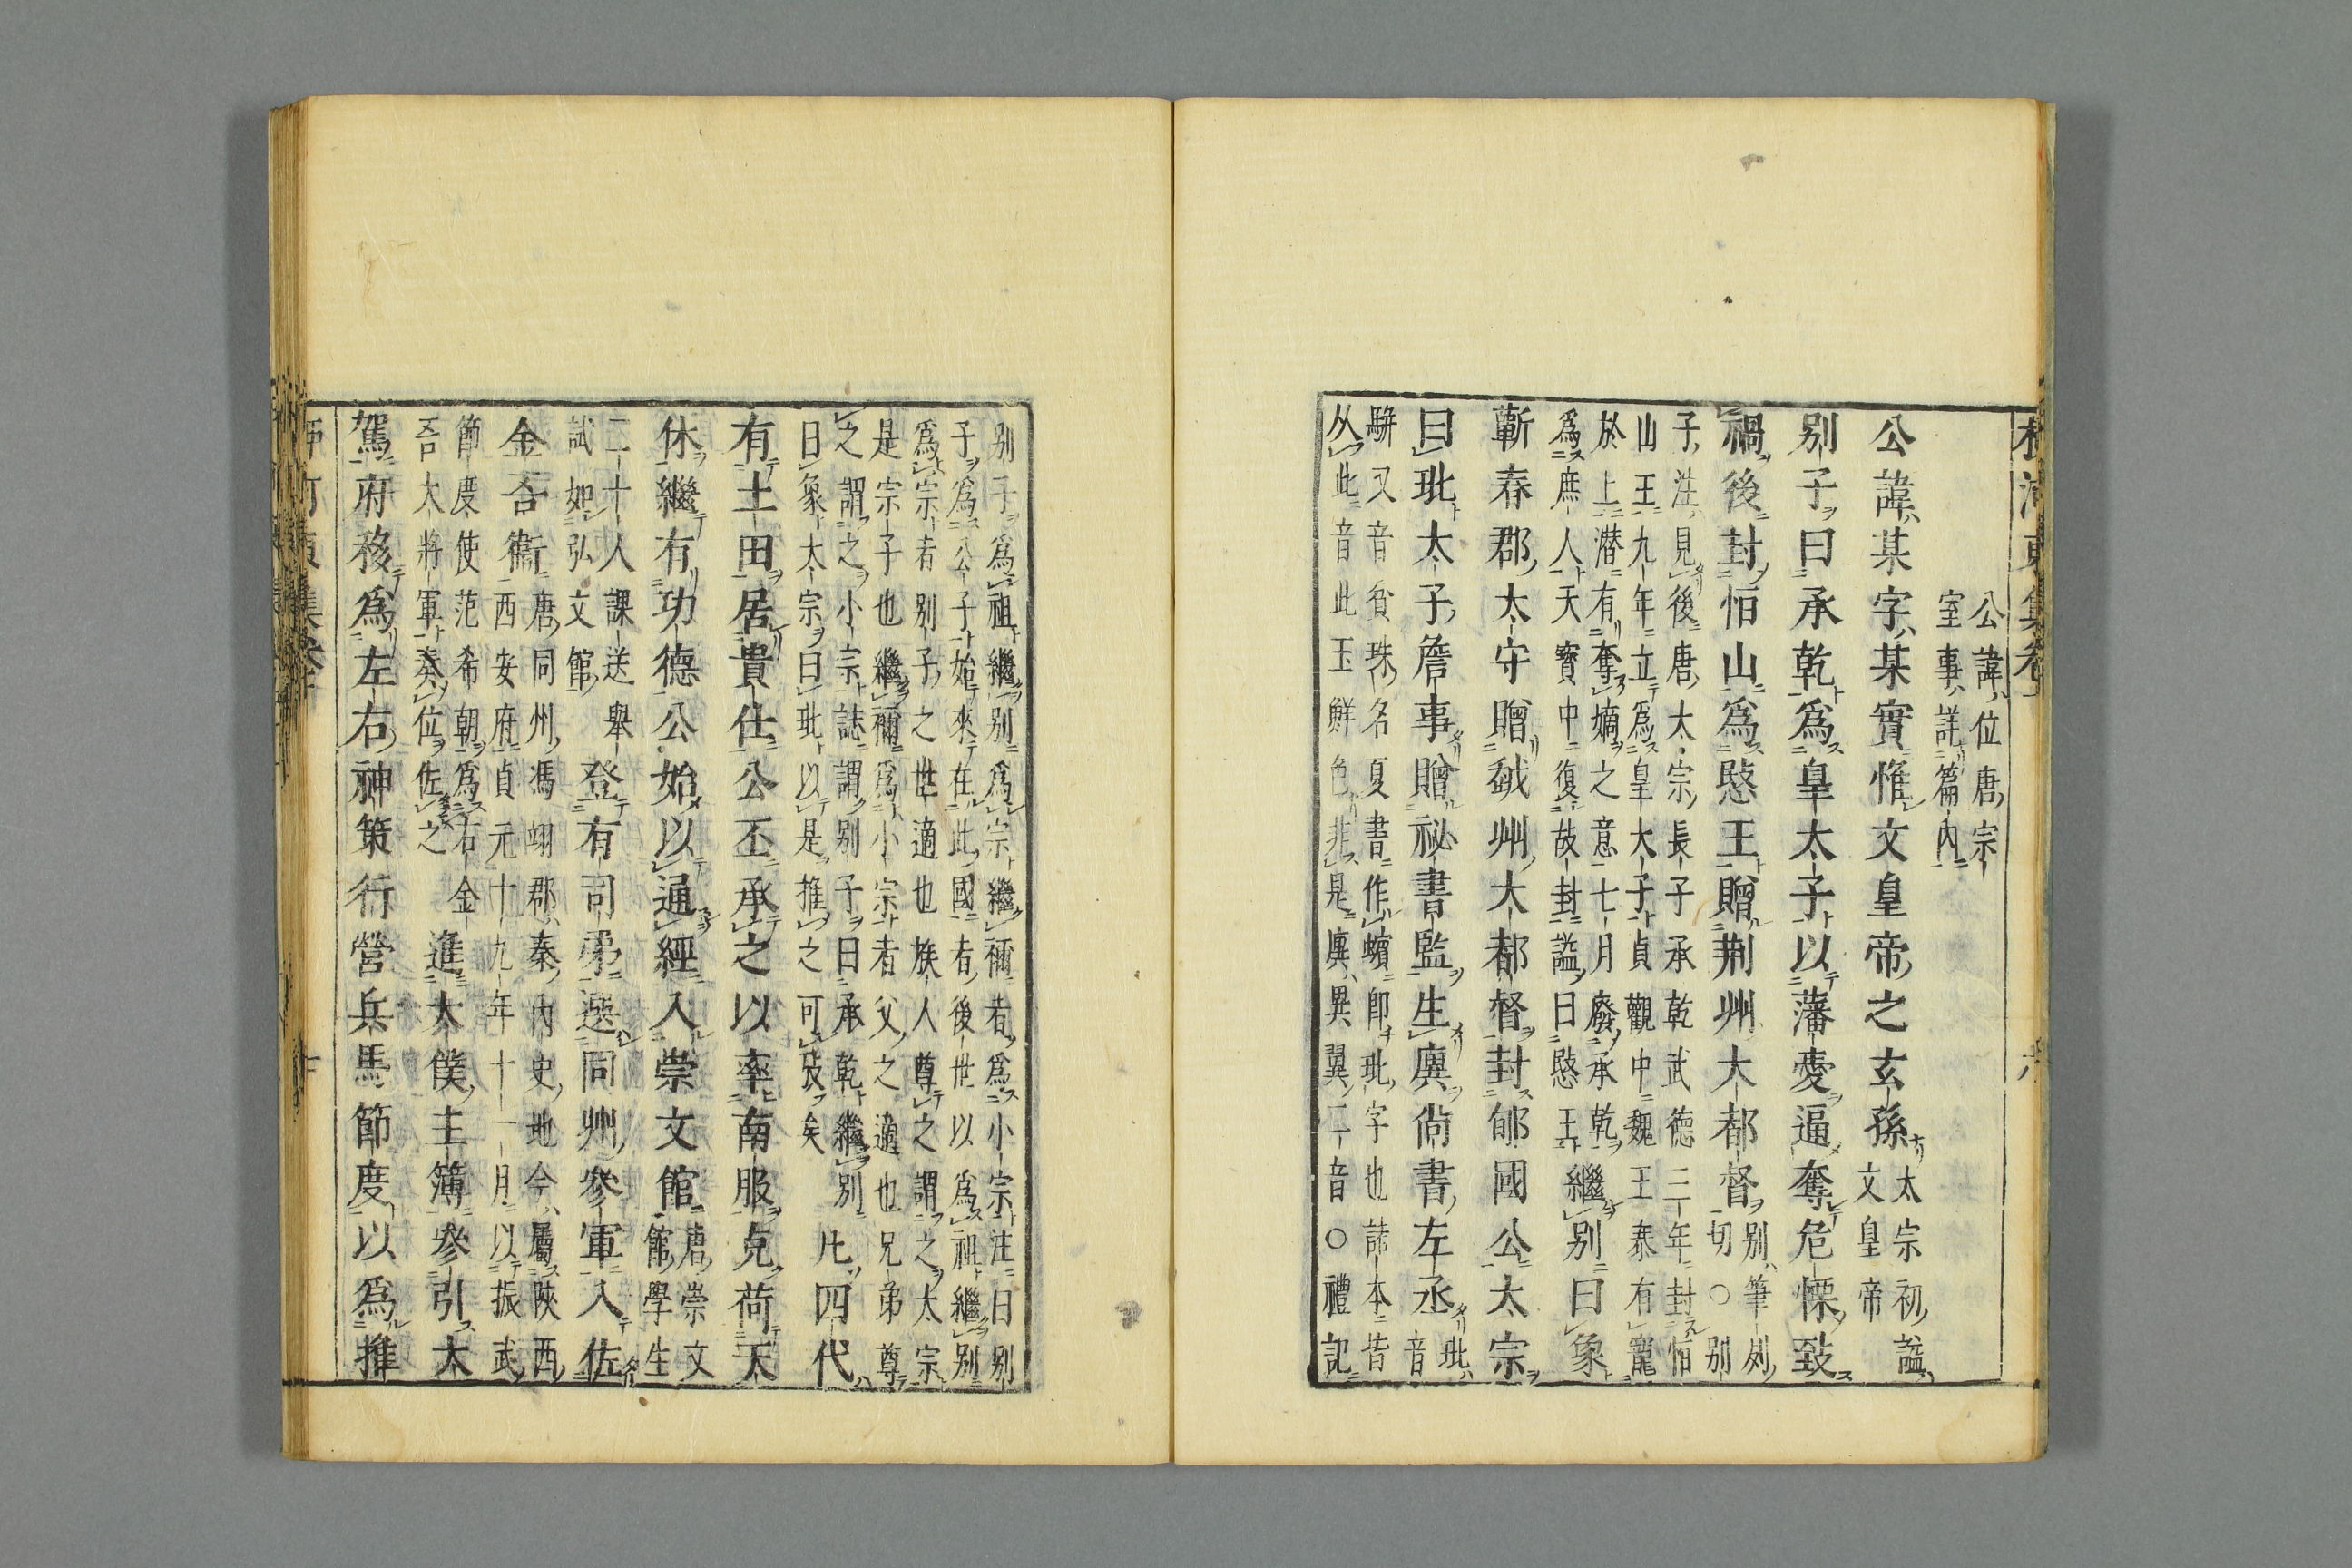 公諱位唐宗
室事詳篇內
公諱某字某實惟文皇帝之玄孫
太宗初謚
文皇帝
別子曰承乾爲皇太子以藩愛逼奪危慄致
禍後封怕山爲愍王贈荆州大都督
別筆列
切○別
子注見後唐太宗長子承乾武德三年封怕
山王九年立爲皇大子貞觀中魏王泰有寵
於上潛有奪嫡之意七月廢承乾
爲庶人天寶中復故封謚曰愍王
繼別曰象
蘄春郡太守贈越州大都督封郇國公太宗
曰玭太子詹事贈祕書監生㢞尙書左丞
玭
音
駢又音貧珠名夏書作蠙卽玭字也諸本皆
从此音此玉鮮色非是㢞異翼二音○禮記
別子爲祖繼別爲宗繼禰者爲小宗注曰別
子爲公子始來在此國者後世以爲祖繼別
爲宗者別子之世適也族人尊之謂之大宗
是宗子也繼禰爲小宗者父之適也兄弟尊
之謂之小宗誌謂別子曰承乾繼別
曰象太宗曰玭以是推之可㢤矣
比四代
有土田居貴仕公丕承之以率南服克荷天
休繼有功德公始以通經入崇文館
唐崇文
館學生
二十人課送舉
試如弘文館
登有司弟選同州參軍入佐
金吾衞
唐同州馮翊郡秦內史地今屬陝西
西安府貞元十九年十一月以振武
節度使范希朝爲右金
吾大將軍奏位佐之
進太僕主簿參引太
駕府移爲左右神策行營兵馬節度以爲推